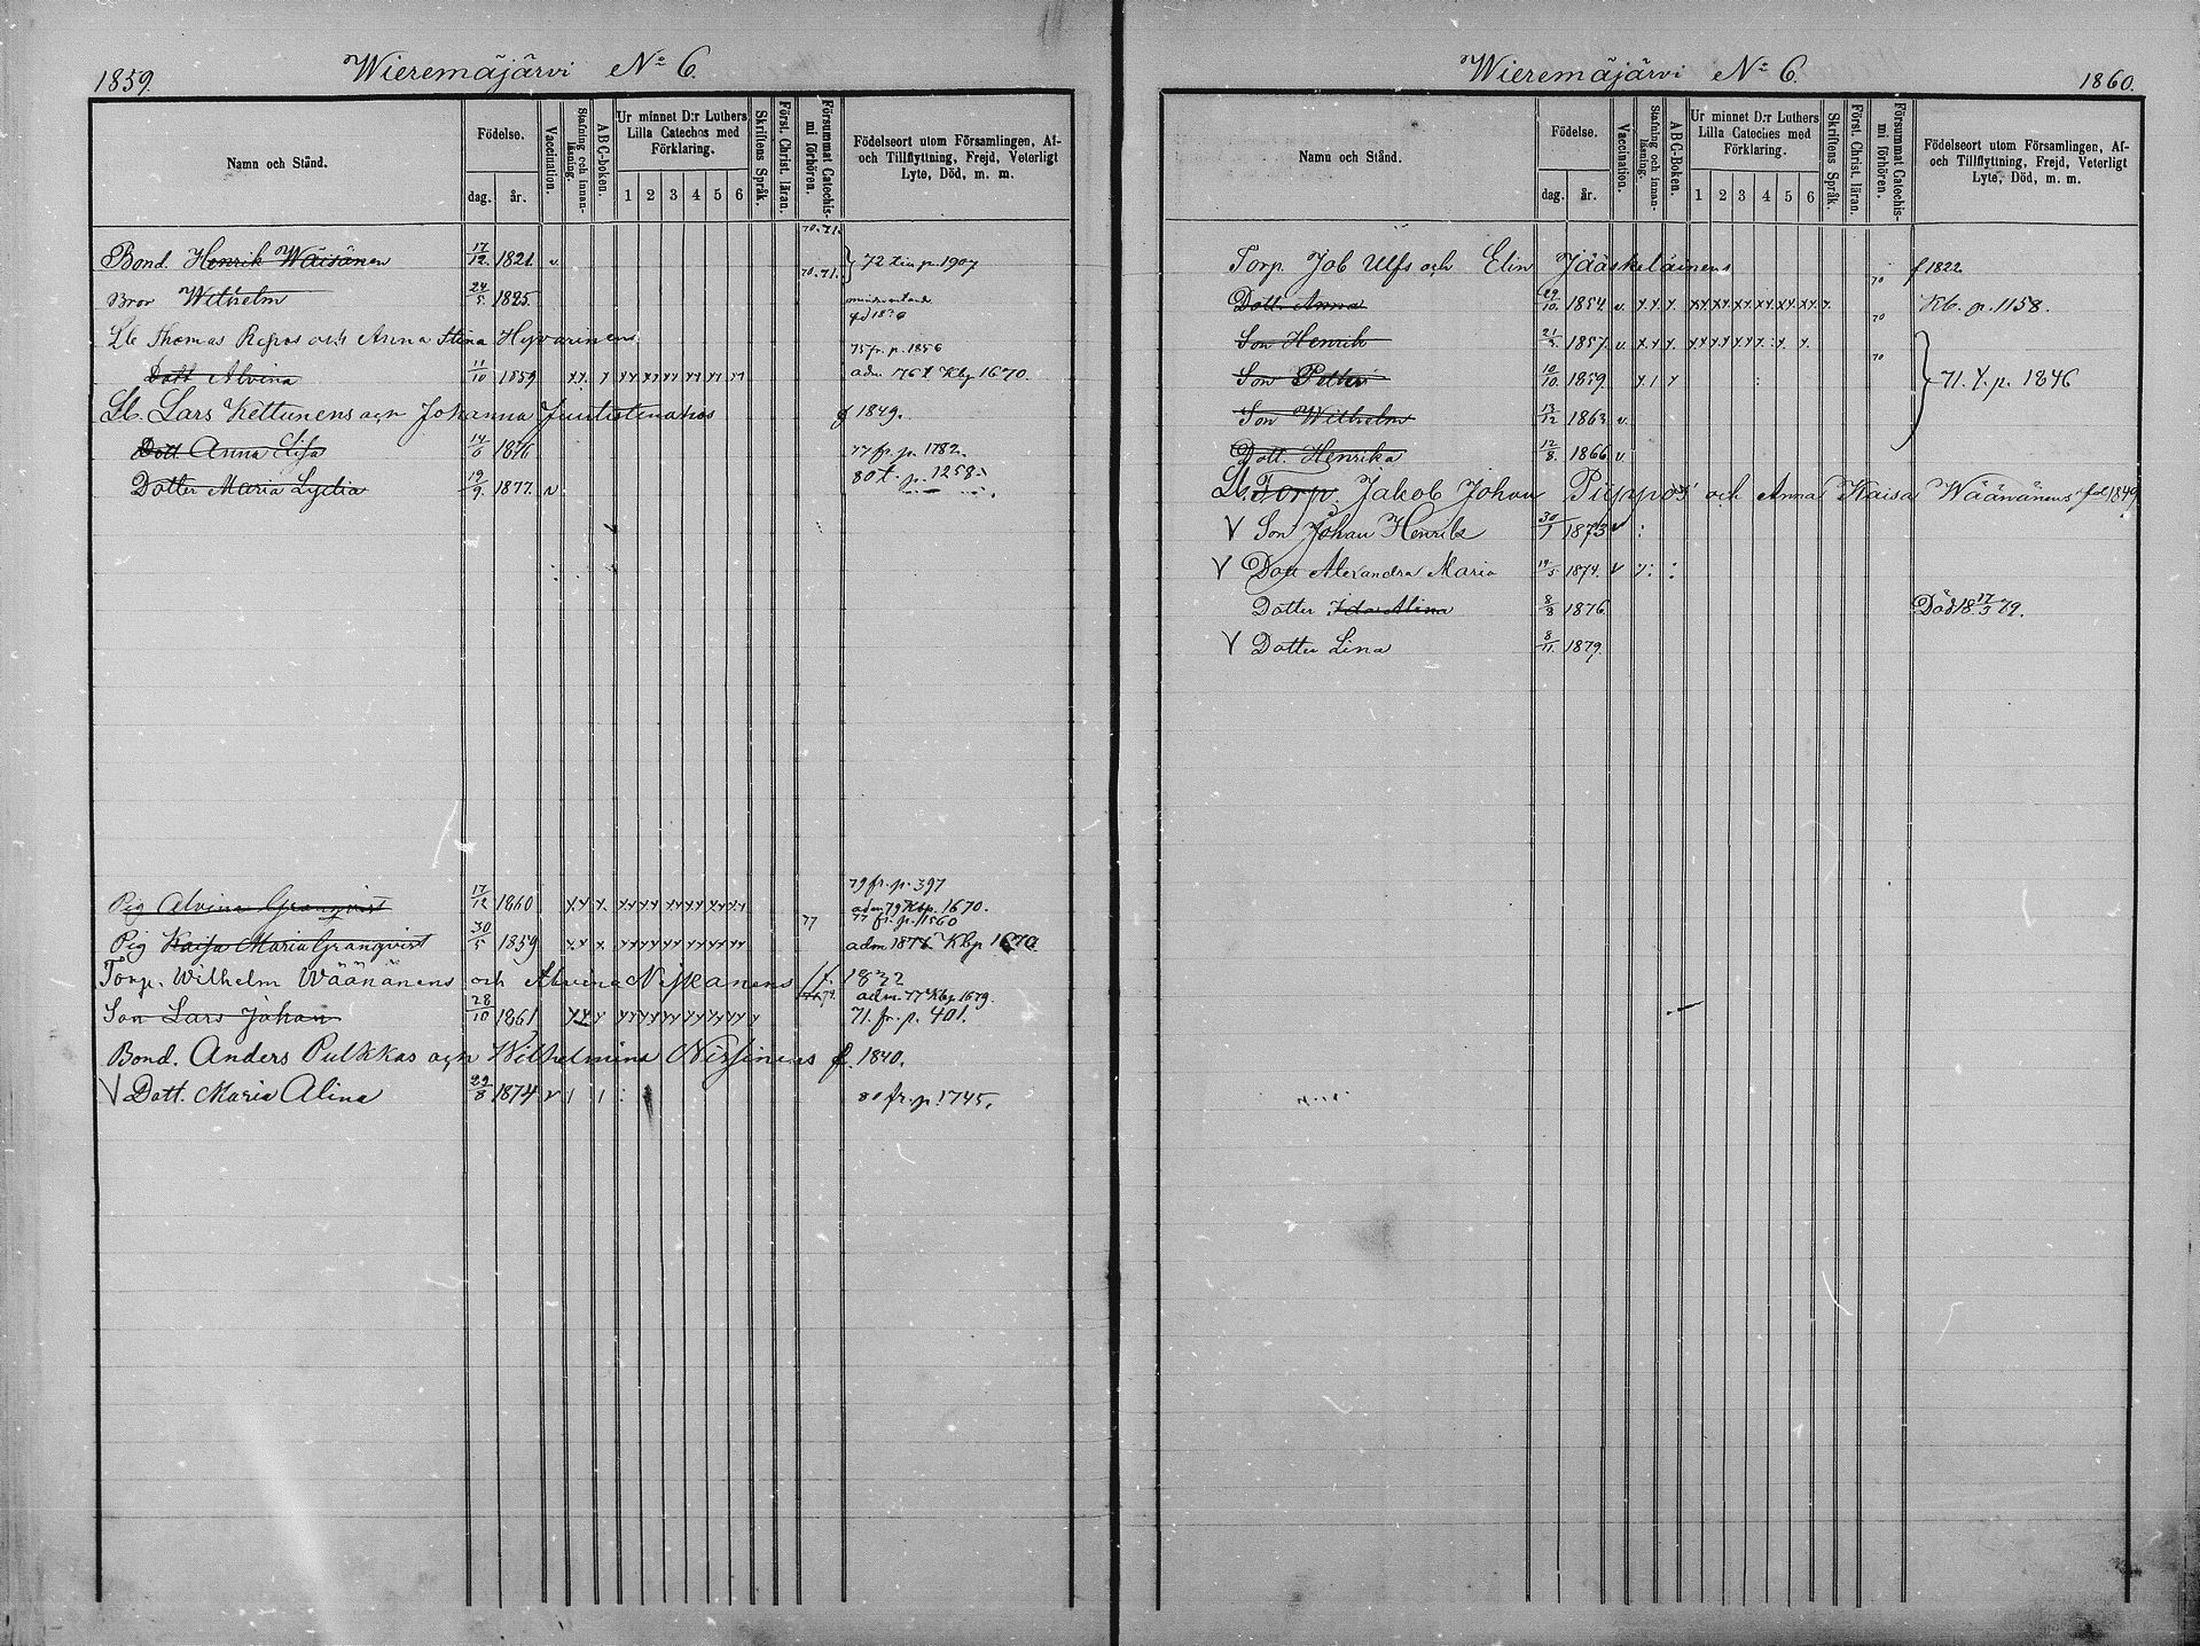 1859.
Wieremäjärvi No 6.
Namn och Stånd.
Födelse.
dag. år.
Vaccination.
Stafning och innanläsning.
A B C-boken.
Ur minnet D:r Luthers Lilla Catechos med Förklaring.
1 2 3 4 5 6
Skriftens Språk.
Först. Christ. läran.
Försummat Catechismi förhören.
Födelseort utom Församlingen, Af- och Tillflyttning, Frejd, Veterligt Lyte, Död, m. m.
70.71.
Bond. Henrik Wäisänen 17/12. 1821. v. } 72 p. 1907
70.71.
Bror Wilhelm 24/5. 1825.
Lb Thomas Repos och Anna Stina Hyvärinens
75 fr. p. 1856
Dott Alvina 11/10 1859 adm 1676 Kbp 1670.
Lb. Lars Kettunens och Johanna f 1849.
Dott Anna Elisa 14/6 1876 77 fr. p. 1782.
Dotter Maria Lydia 19/9. 1877. v 80 t. p. 1258.
79 fr. p. 397
Pig Alvina Granqvist 17/12 1860 adm 79 Kbp. 1670.
77 77 fr. p. 1560
Pig Kaisa Maria Granqvist 30/5 1859 Kbp 1670
Torp. Wilhelm Wäänänens och Alvina Niskanens f. 1832
adm. 77 Kbp 1679.
Son Lars Johan 28/10 1861 71. fr. p. 401.
Bond. Anders Pulkkas och Wilhelmina Nissinens f. 1840.
V Dott. Maria Alina 29/8 1874 v 80 fr. p. 1745.
Wieremäjärvi No 6.
1860.
Namn och Stånd.
Födelse.
dag. år.
Vaccination.
Stafning och innanläsning.
A B C-boken.
Ur minnet D:r Luthers Lilla Cateches med Förklaring.
1 2 3 4 5 6
Skriftens Språk.
Först. Christ. läran.
Försummat Catechismi förhören.
Födelseort utom Församlingen, Af- och Tillflyttning, Frejd, Veterligt Lyte, Död, m. m.
Torp. Job Ulfs och Elin Jääskeläinens f 1822
70
Dott. Anna 29/10. 1854. v. Kb. p. 1158.
70
Son Henrik 1857. v.
70
Son Petter 10/10. 1859. } 71. t. p. 1846
Son Wilhelm 13/12 1863 v.
Dott. Henrika 12/8. 1866 v
Lb. Torp. Jakob Johan Piippos och Anna Kaisa Wäänänens 1849
V Son Johan Henrik 30/1 1873 v
V Dott Alexandra Maria 19/5 1874. v
Dotter Ida Alina 8/8 1876 Död 18 17/3 79.
V Dotter Lina 8/11. 1879.